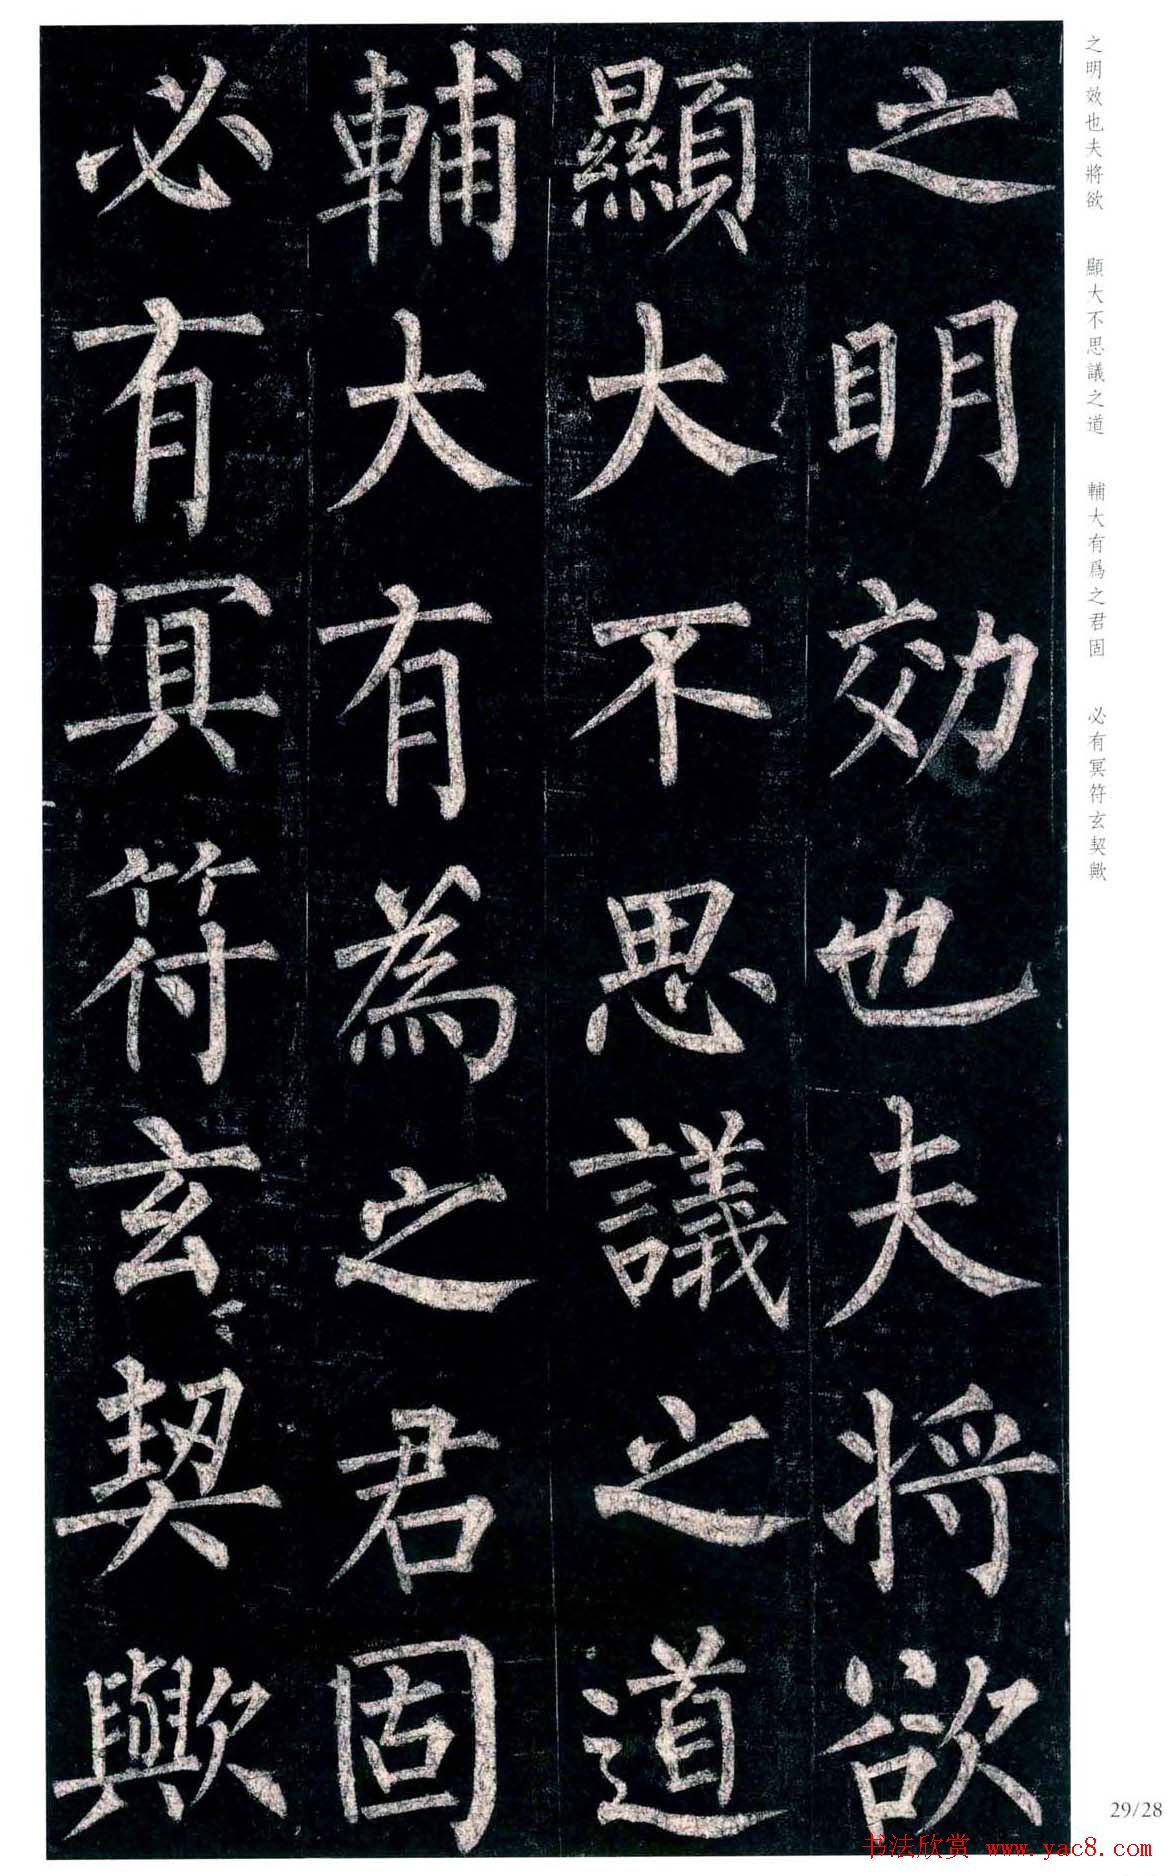 之明効也夫將欲
顯大不思議之道
輔大有為之君固
必有冥符玄契歟
之明效也夫將欲　顯大不思議之道　輔大有爲之君固　必有冥符玄契歟
29/28
书法欣赏 www.yac8.com